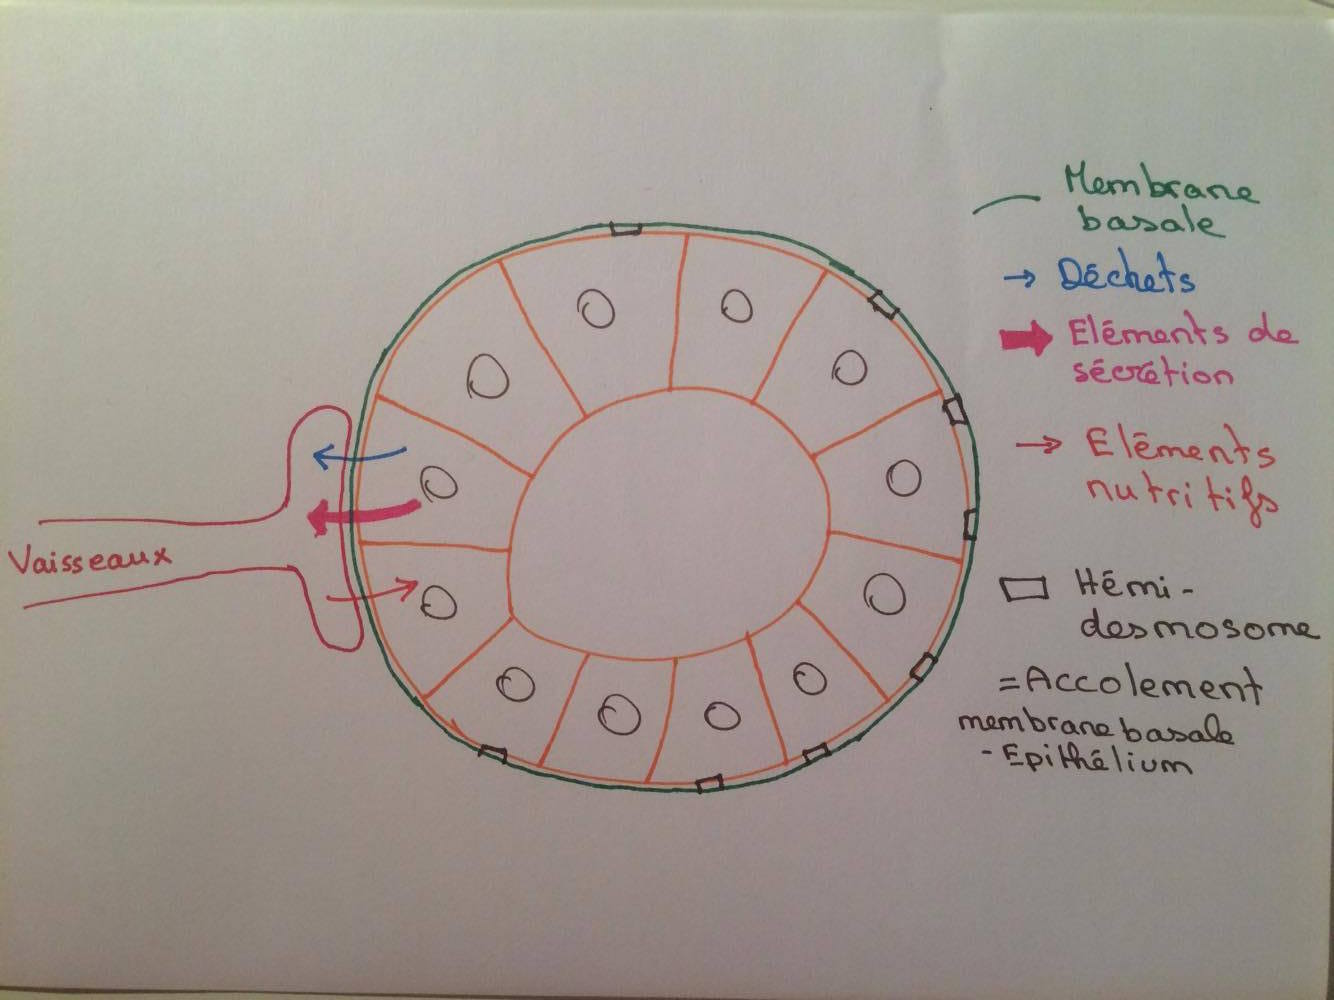 Membrane
basale
Déchets
Eléments de
sécrétion
Eléments
nutritifs
Vaisseaux
Hémi-
desmosome
= Accolement
membrane basale
- Epithélium